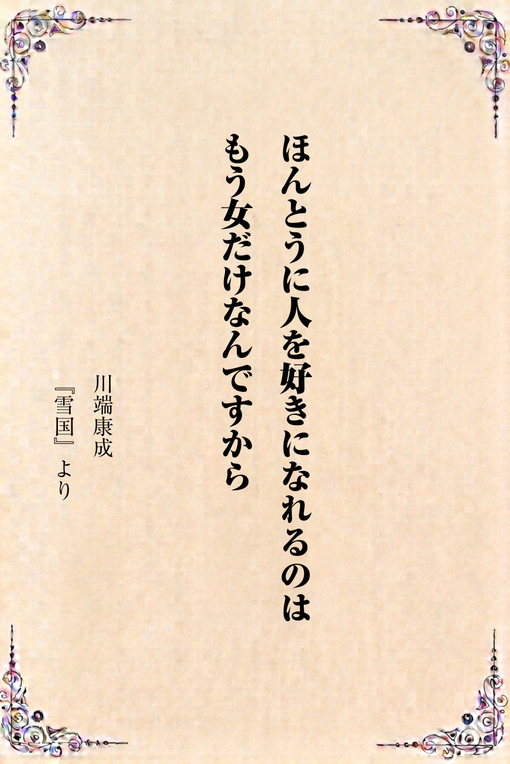 ほんとうに人を好きになれるのは
もう女だけなんですから
川端康成
『雪国』より